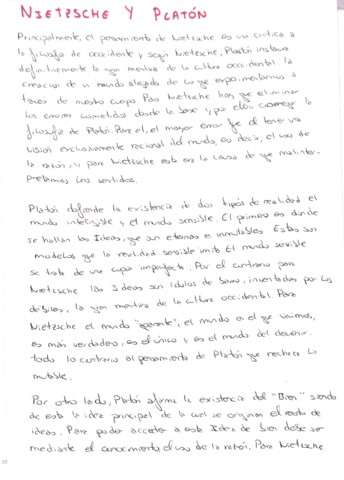 NIETZSCHE Y PLATÓN
Principalmente, el pensamiento de Nietzsche es una crítica a
la filosofía de occidente y según Nietzsche, Platón instaura
definitivamente la gran mentira de la cultura occidental la
creación de un mundo alejado de lo que experimentamos a
través de nuestro cuerpo. Para Nietzsche hay que eliminar
los errores cometidos desde la base y por ello comenzar la
filosofía de Platón. Para el, el mayor error fue el tener una
visión exclusivamente racional del mundo, es decir, el uso de
la razón, y para Nietzsche esta era la causa de que malinter-
pretemos los sentidos.
Platón defiende la existencia de dos tipos de realidad el
mundo inteligible y el mundo sensible. El primero es donde
se hallan las Ideas, que son eternas e inmutables. Estas son
modelos que la realidad sensible imita. El mundo sensible
se trata de una copia imperfecta. Por el contrario para
Nietzsche las Ideas son ídolos de humo, inventadas por los
débiles, la gran mentira de la cultura occidental. Para
Nietzsche el mundo "aparente", el mundo en el que vivimos,
es más verdadero, es el único y es el mundo del devenir.
todo lo contrario al pensamiento de Platón que rechaza lo
mutable.
Por otro lado, Platón afirma la existencia del "Bien" siendo
de esta la idea principal de la cual se originan el resto de
ideas. Para poder acceder a esta Idea de Bien debe ser
mediante el conocimiento, el uso de la razón. Para Nietzsche